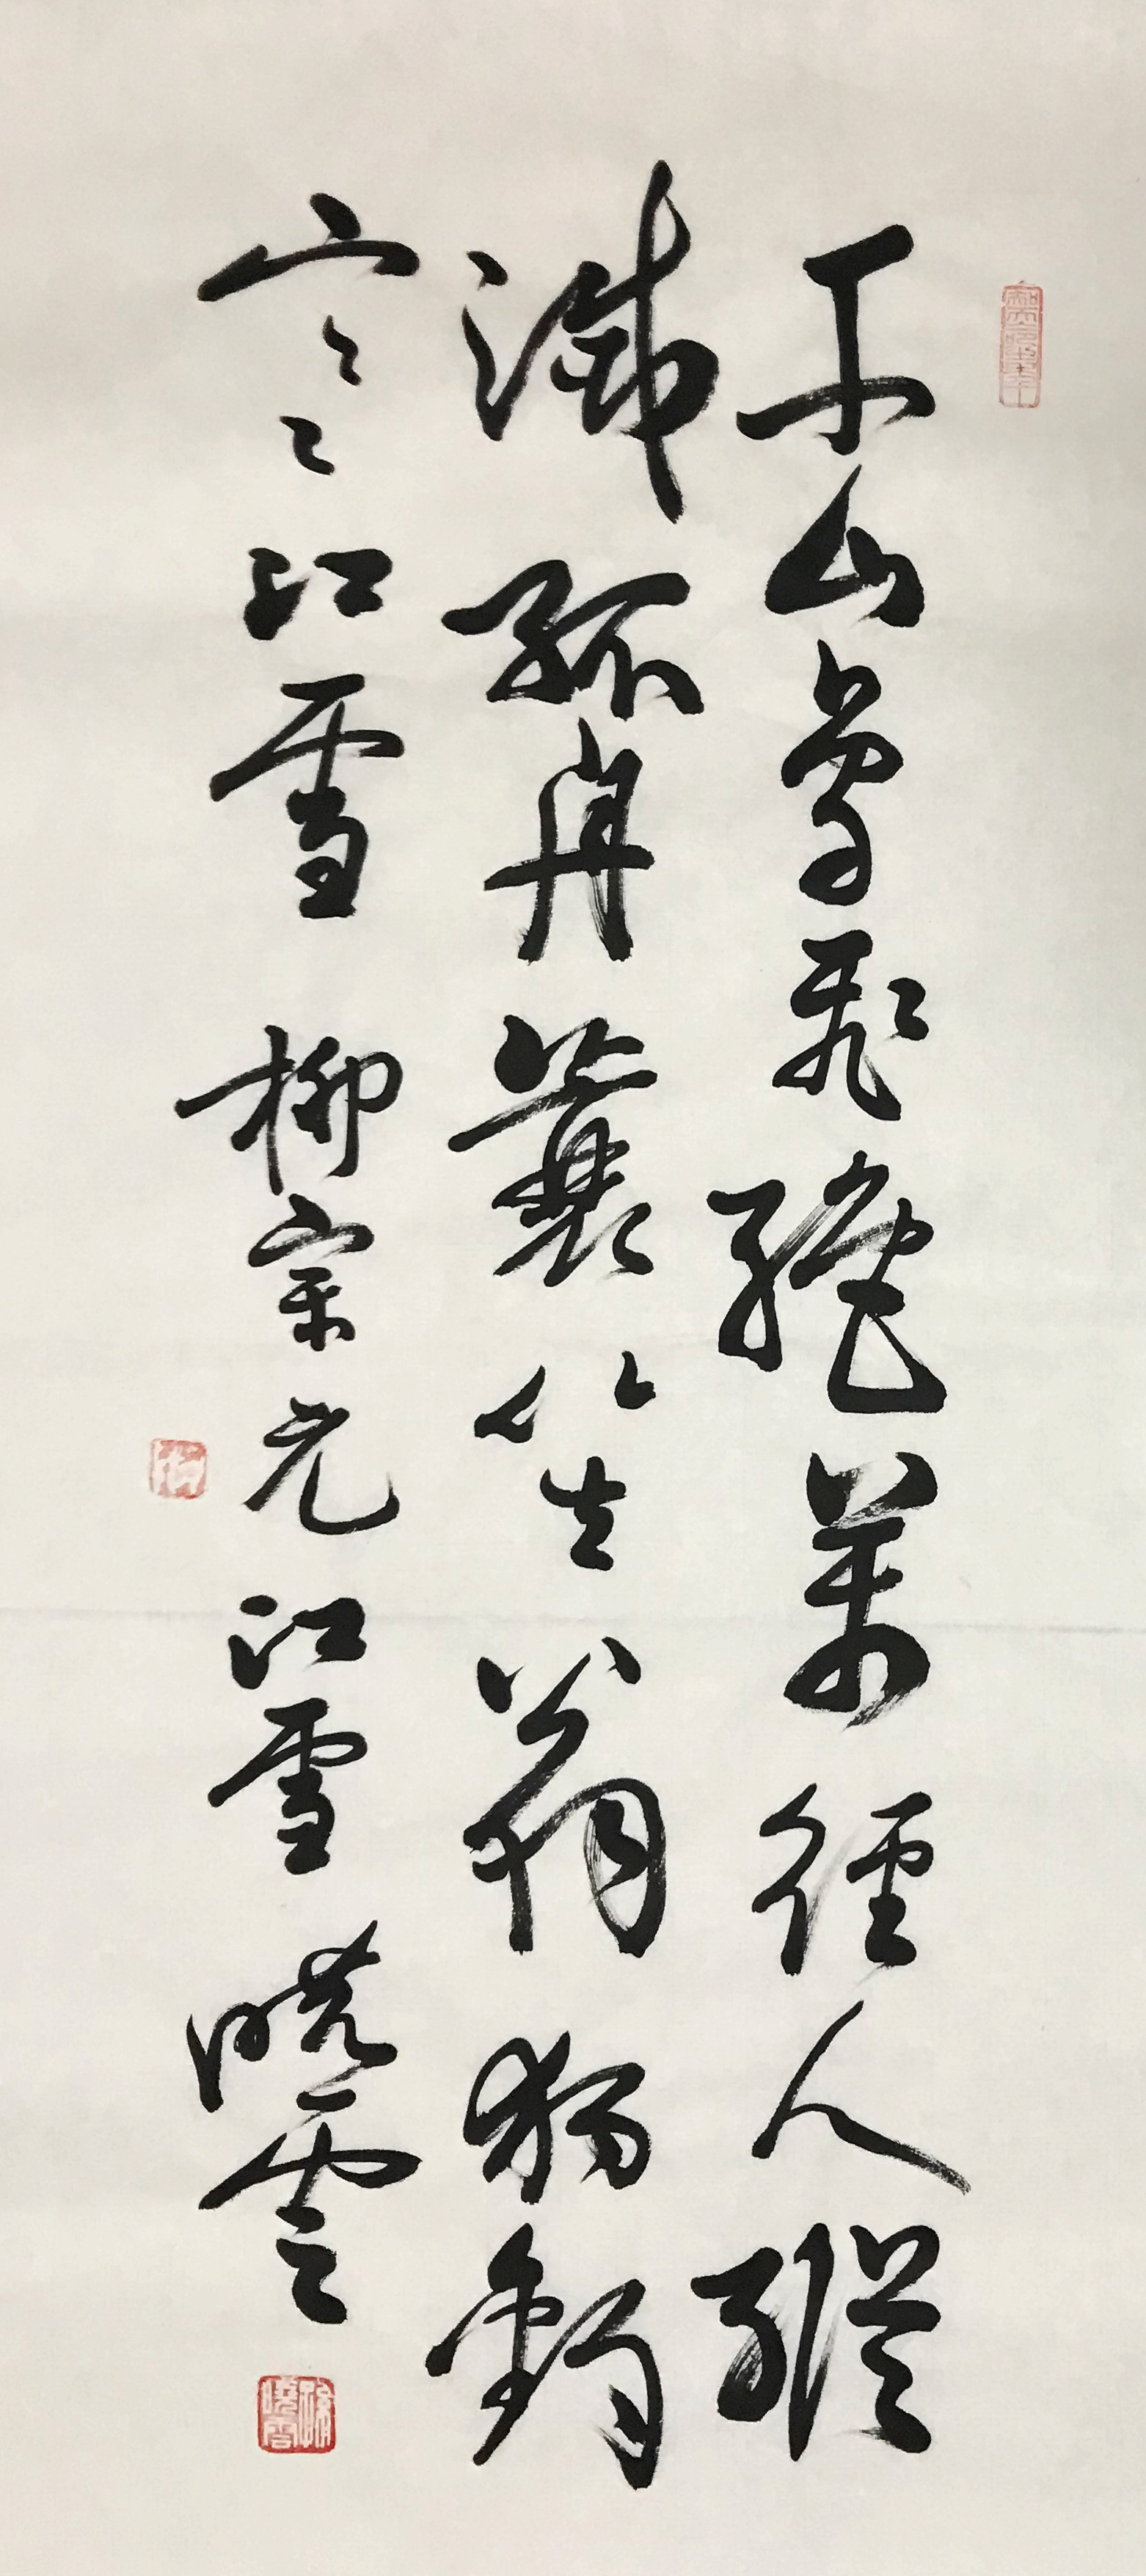 千山鳥飛絕萬徑人蹤
滅孤舟蓑笠翁獨釣
寒江雪 柳宗元江雪 曉雲
孫曉雲